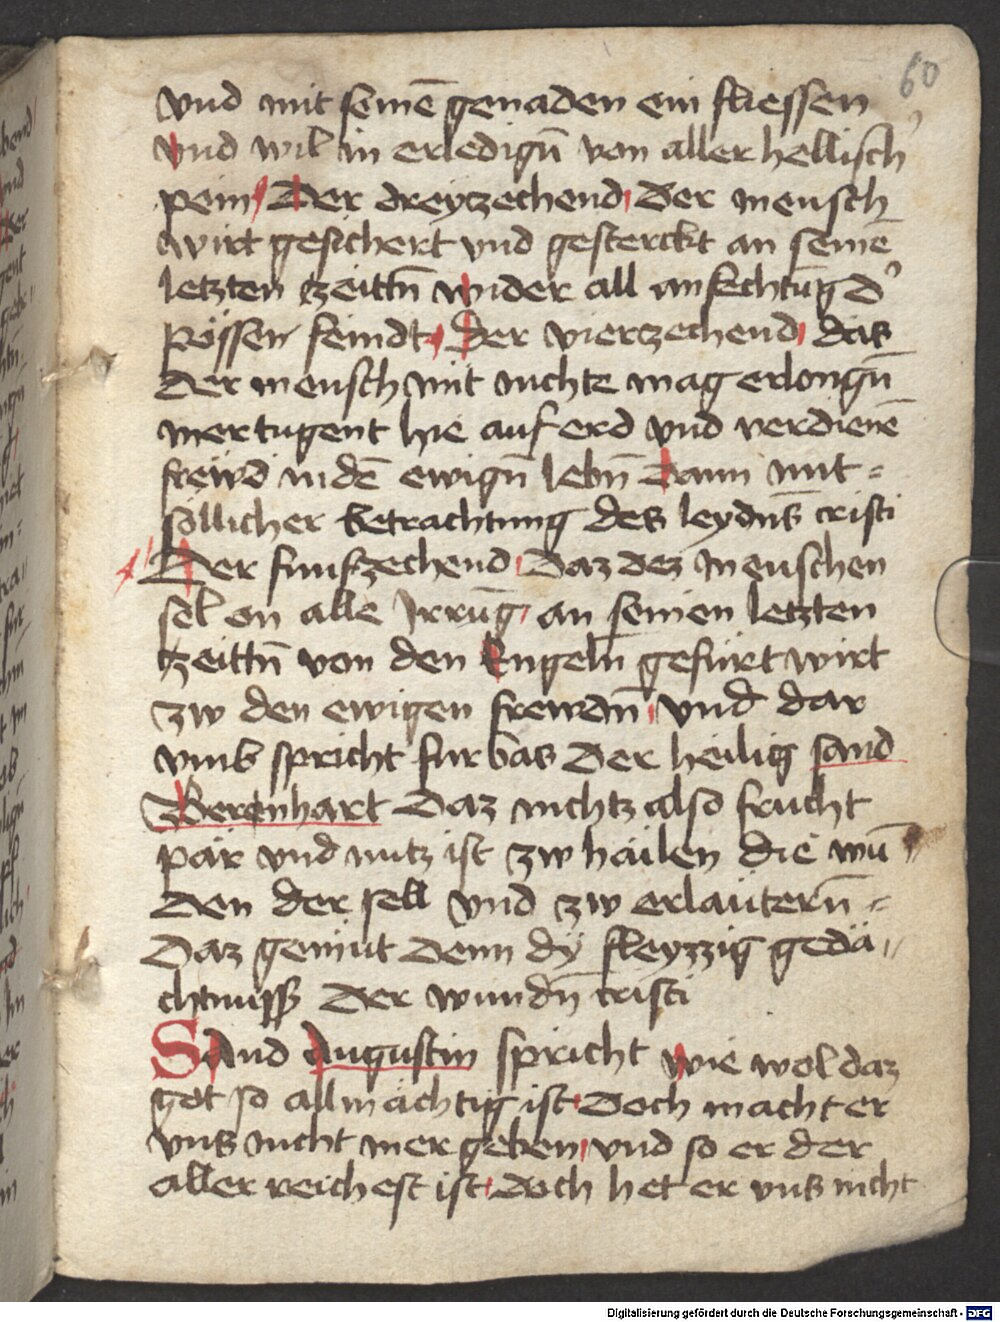 60
vnd mit seinē genaden ein fliessen
vnd wil in erledign̄ von aller hellisch'
pein Der dreyzechend Der mensch
wirt gesichert vnd gesterckt an seinē
letzten tzeittn̄ wider all anfechtūg d'
pössen feindt Der vierzechend das
Der mensch mit nichte mag erlongn̄
mer tugent hie auf erd vnd verdienē
frëwd in dē ewign̄ lebn̄ Dann mit =
söllicher betrachtung des leydn̄s cristi
Der funfzechend Daz dez menschen
sel on alle Irrūg an seinen letzten
tzeittn̄ von den Engeln gefürt wirt
zw den ewigen frewdn̄ vnd dar
vmb spricht fur bas Der heilig sand
Berenhart Daz nichtz also frucht
pär vnd nutz ist zw häilen die wū
den der sell vnd zw erläutern̄ =
Daz gemüt Denn dÿ fleyzzig gedä //
chtnuss Der wundn̄ cristi
SAnd Augustin spricht wie wol daz
got so allmächtig ist Doch macht er
vns nicht mer geben vnd so er der
aller reichest ist doch het er vns nicht
Digitalisierung gefördert durch die Deutsche Forschungsgemeinschaft - DFG